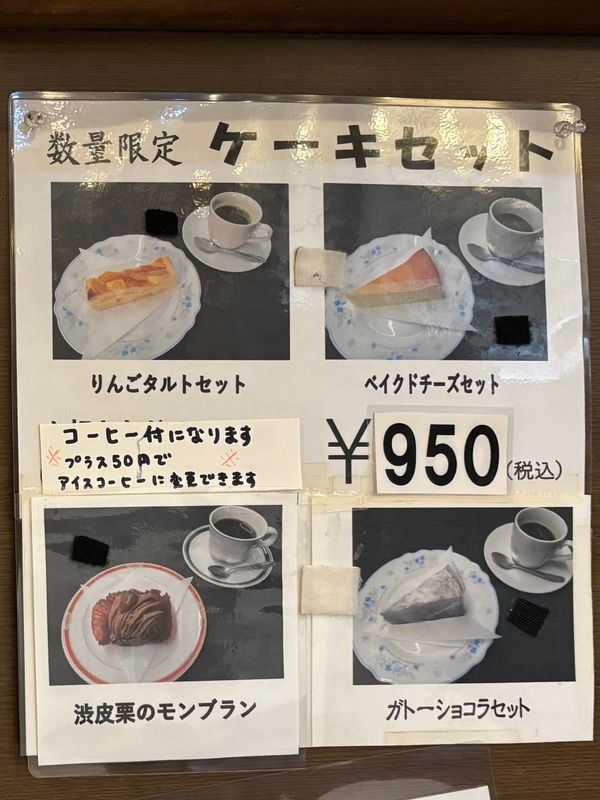 数量限定 ケーキセット
りんごタルトセット
ベイクドチーズセット
コーヒー付になります
※プラス50円で※
アイスコーヒーに変更できます
¥950(税込)
渋皮栗のモンブラン
ガトーショコラセット